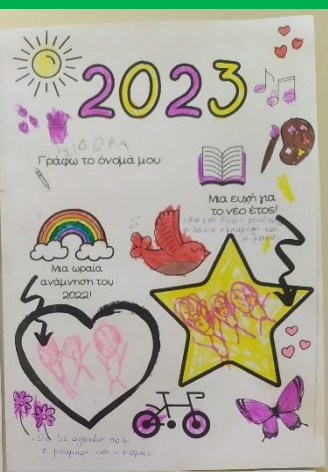 2023
ΙΣΙΔΩΡΑ
Γράφω το όνομά μου:
Μια ευχή για
το νέο έτος!
Μια ωραία
ανάμνηση του
2022!
ο μπαμπάς και η μαμά»